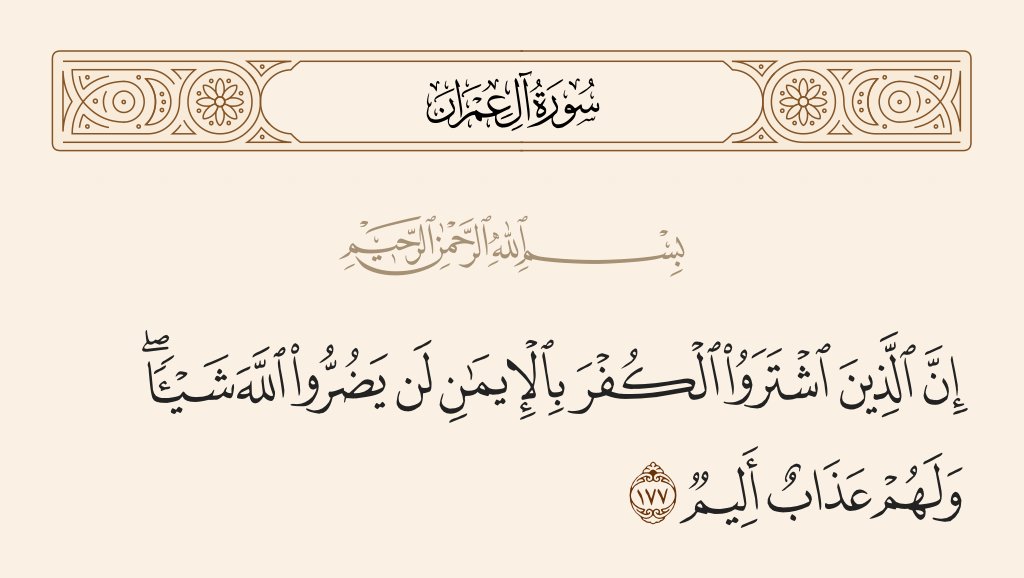 سُورَةُ آلِ عِمْرَانَ
بِسْمِ ٱللَّهِ ٱلرَّحْمَٰنِ ٱلرَّحِيمِ
إِنَّ ٱلَّذِينَ ٱشْتَرَوُا۟ ٱلْكُفْرَ بِٱلْإِيمَٰنِ لَن يَضُرُّوا۟ ٱللَّهَ شَيْـًٔا ۖ
وَلَهُمْ عَذَابٌ أَلِيمٌ ١٧٧